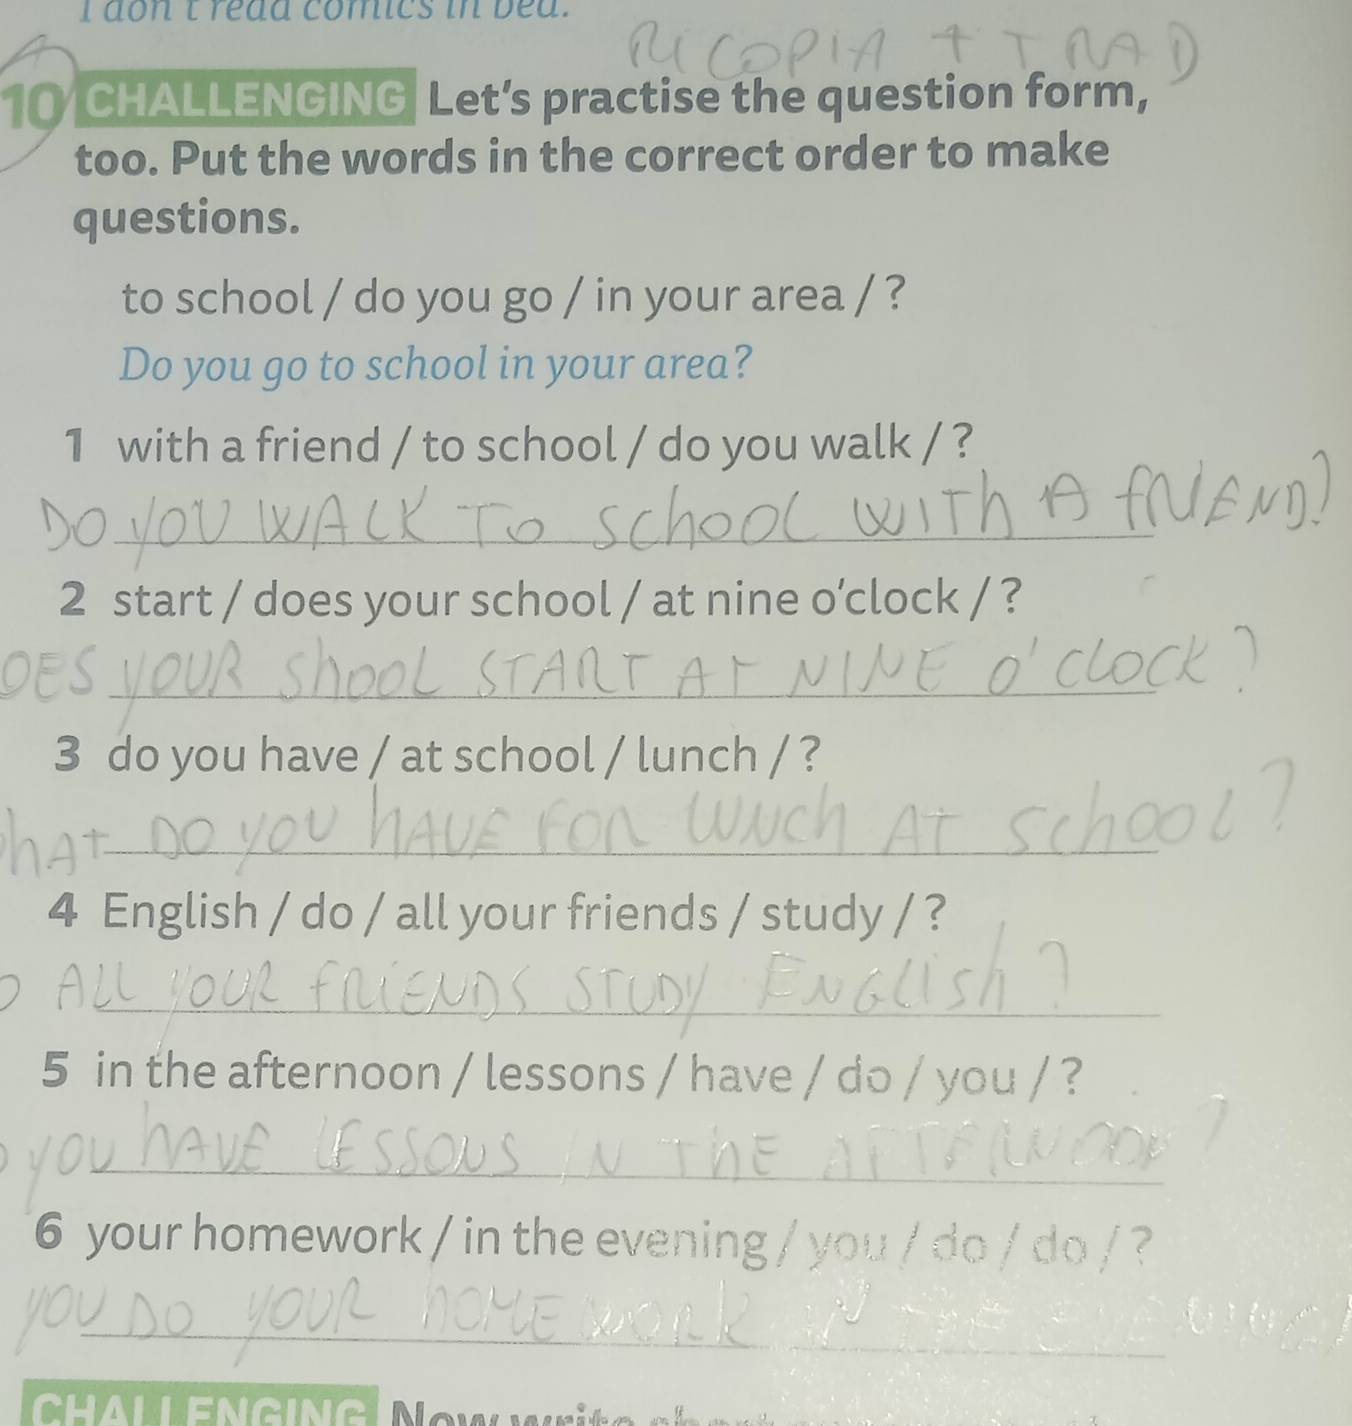 I don't read comics in bed.
RICOPIA + TRAD
10 CHALLENGING Let's practise the question form,
too. Put the words in the correct order to make
questions.
to school / do you go / in your area / ?
Do you go to school in your area?
1 with a friend / to school / do you walk / ?
DO YOU WALK TO SCHOOL WITH A FRIEND?
2 start / does your school / at nine o'clock / ?
OES YOUR SHOOL START AT NINE O'CLOCK?
3 do you have / at school / lunch / ?
hAT DO YOU HAVE FOR LUNCH AT SCHOOL?
4 English / do / all your friends / study / ?
O ALL YOUR FRIENDS STUDY ENGLISH?
5 in the afternoon / lessons / have / do / you / ?
O YOU HAVE LESSONS IN THE AFTERNOON?
6 your homework / in the evening / you / do / do / ?
YOU DO YOUR HOMEWORK IN THE EVENING
CHALLENGING Now write